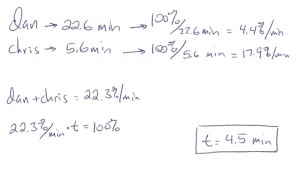 dan → 22.6 min → 100%/22.6min = 4.4%/min
chris → 5.6 min → 100%/5.6 min = 17.9%/min
dan + chris = 22.3%/min
22.3%/min · t = 100%
t = 4.5 min